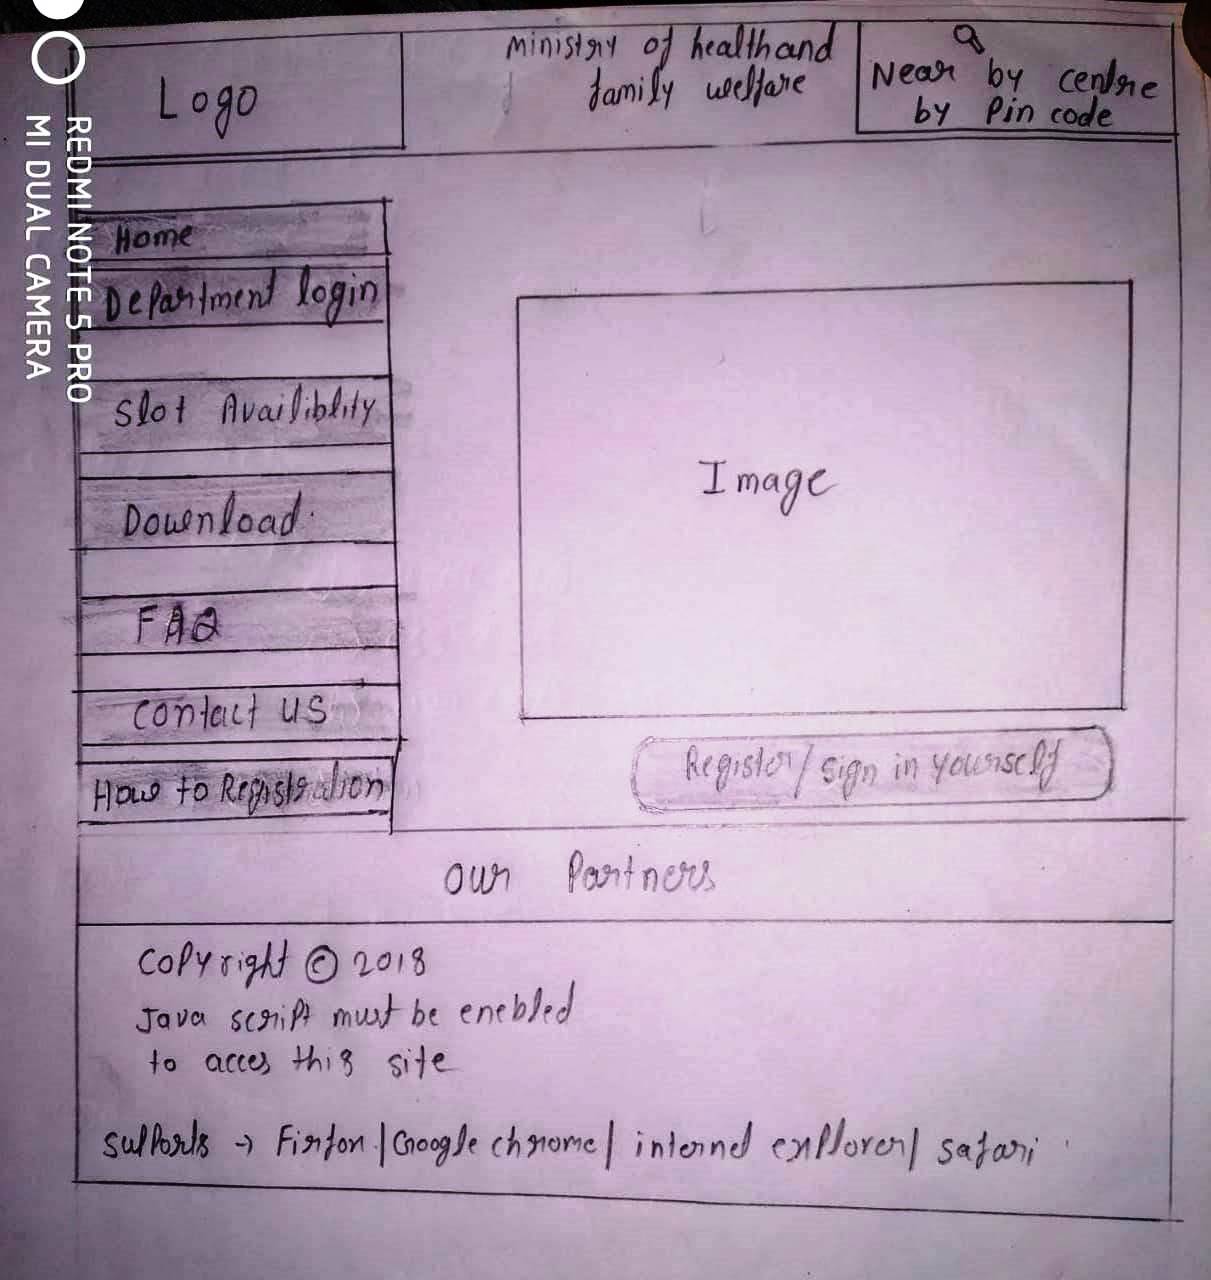 Logo
ministry of health and
family welfare
Near by centre
by Pin code
Home
Department login
Slot Availiblity
Download
FAQ
Contact us
How to Registration
Image
Register/sign in yourself
our Partners
Copyright © 2018
Java script must be enebled
to acces this site
supports → Firfon | Google chrome | internel explorer | safari
REDMI NOTE 5 PRO
MI DUAL CAMERA